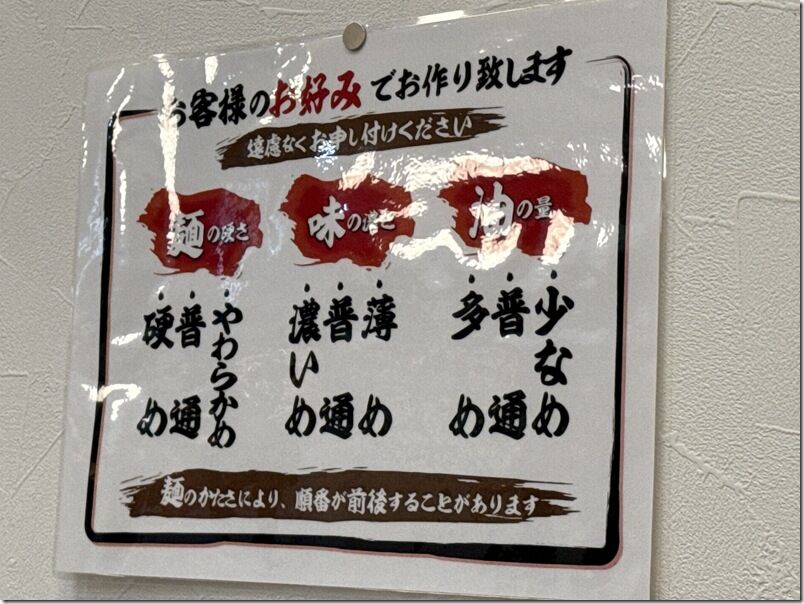 お客様のお好みでお作り致します
遠慮なくお申し付けください
麺の硬さ
やわらかめ
普通
硬め
味の濃さ
薄め
普通
濃いめ
油の量
少なめ
普通
多め
麺のかたさにより、順番が前後することがあります